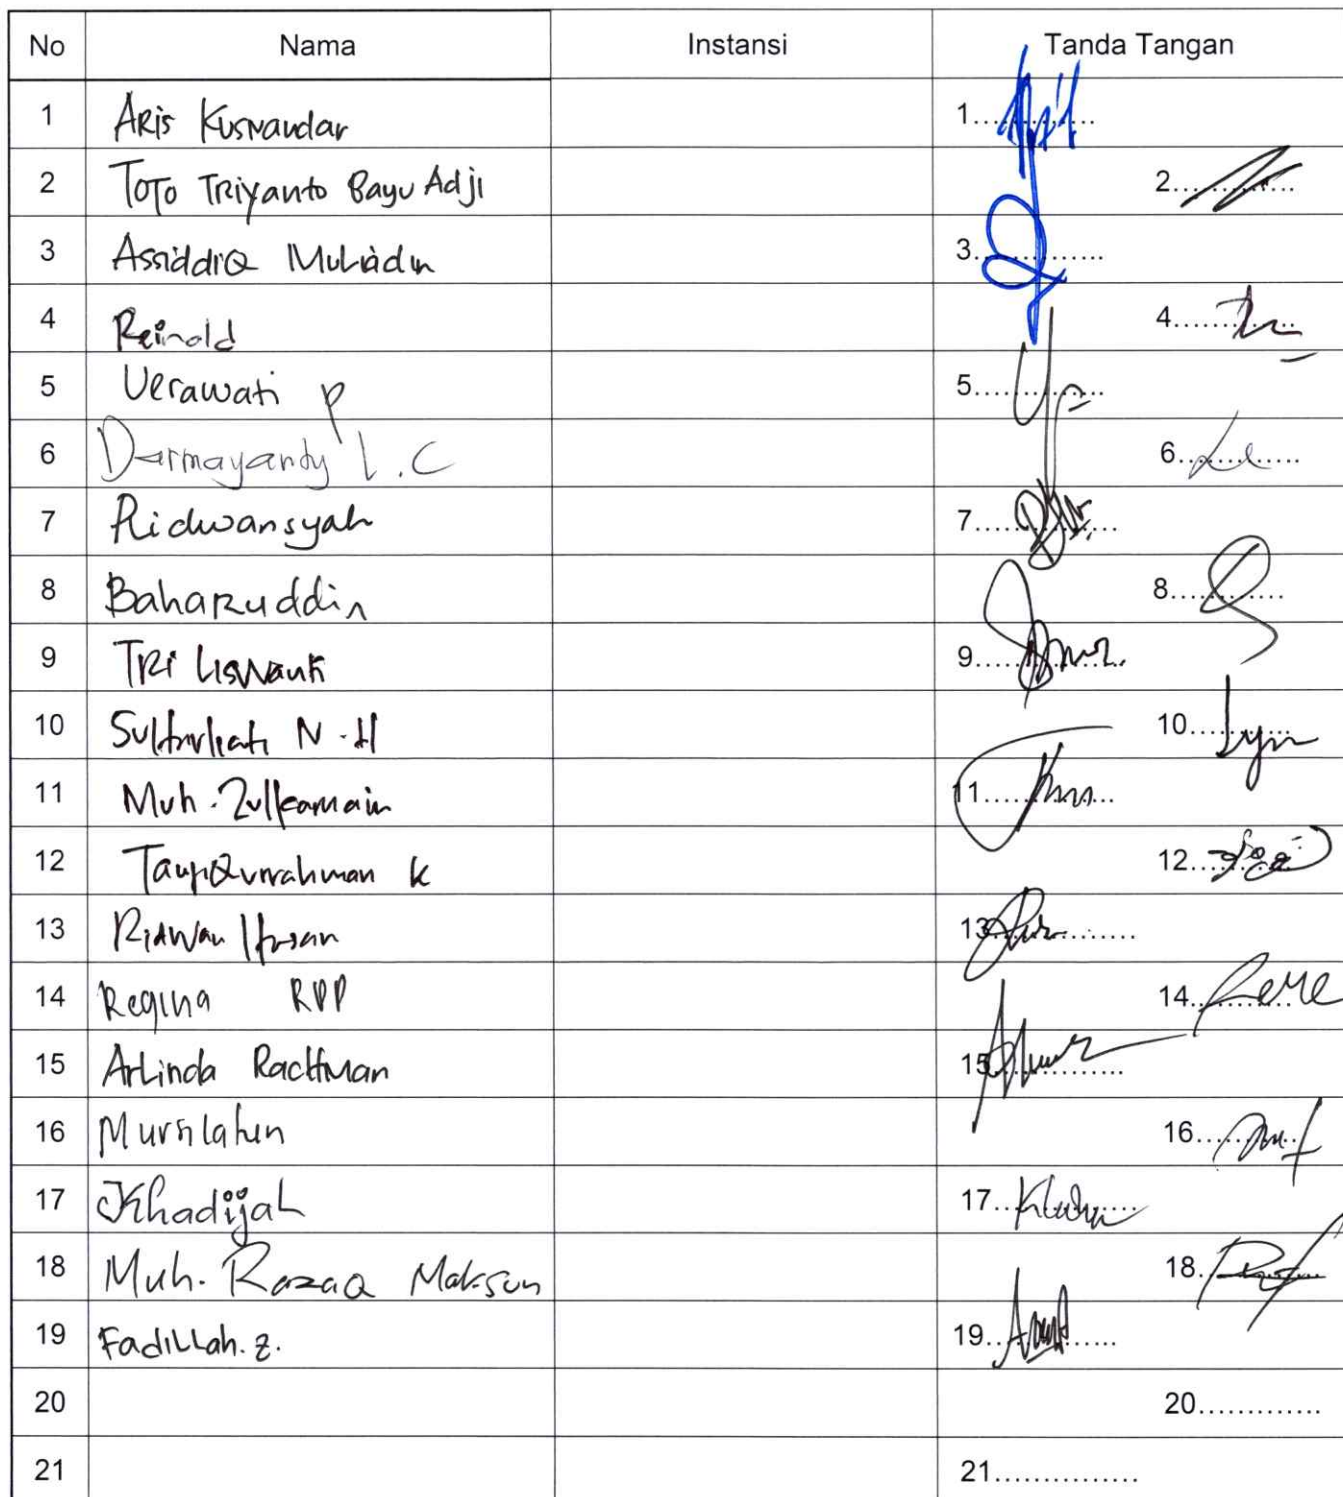 No Nama Instansi Tanda Tangan
1 Aris Kusnandar 1...............
2 Toto Triyanto Bayu Adji 2...............
3 AssiddiQ Muliadin 3...............
4 Reinold 4...............
5 Verawati P 5...............
6 Darmayanty L.C 6...............
7 Ridwansyah 7...............
8 Baharuddin 8...............
9 Tri Liswanti 9...............
10 N.H 10...............
11 Muh. Zulkarnain 11...............
12 TaufiQurrahman K 12...............
13 Ridwan Ihsan 13...............
14 Regina RPP 14...............
15 Arlinda Rachman 15...............
16 Mursilatun 16...............
17 Khadijah 17...............
18 Muh. RazaQ Maksun 18...............
19 Fadillah.z. 19...............
20 20...............
21 21...............